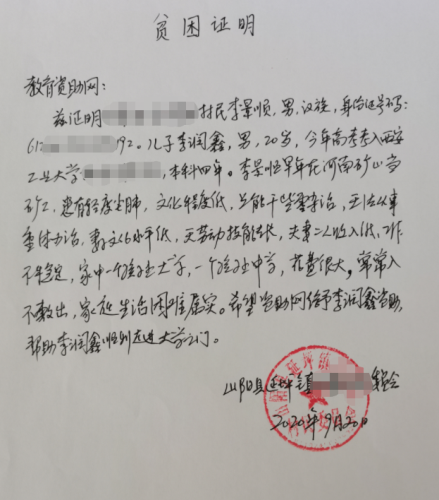 贫困证明
教育资助网：
兹证明 村民李景顺，男，汉族，身份证号码：
612 192。儿子李润鑫，男，20岁，今年高考考入西安
工业大学 ，本科四年。李景顺早年在河南矿山当
矿工，患有轻度尘肺，文化程度低，只能干些零活，无法从事
重体力活，妻文化水平低，无劳动技能特长，夫妻二人收入低，工作
不稳定，家中一个孩子上大学，一个孩子中学，花费很大，常常入
不敷出，家庭生活困难属实。希望资助网给予李润鑫资助，
帮助李润鑫顺利走进大学之门。
山阳县延坪镇 委会
2020年9月20日